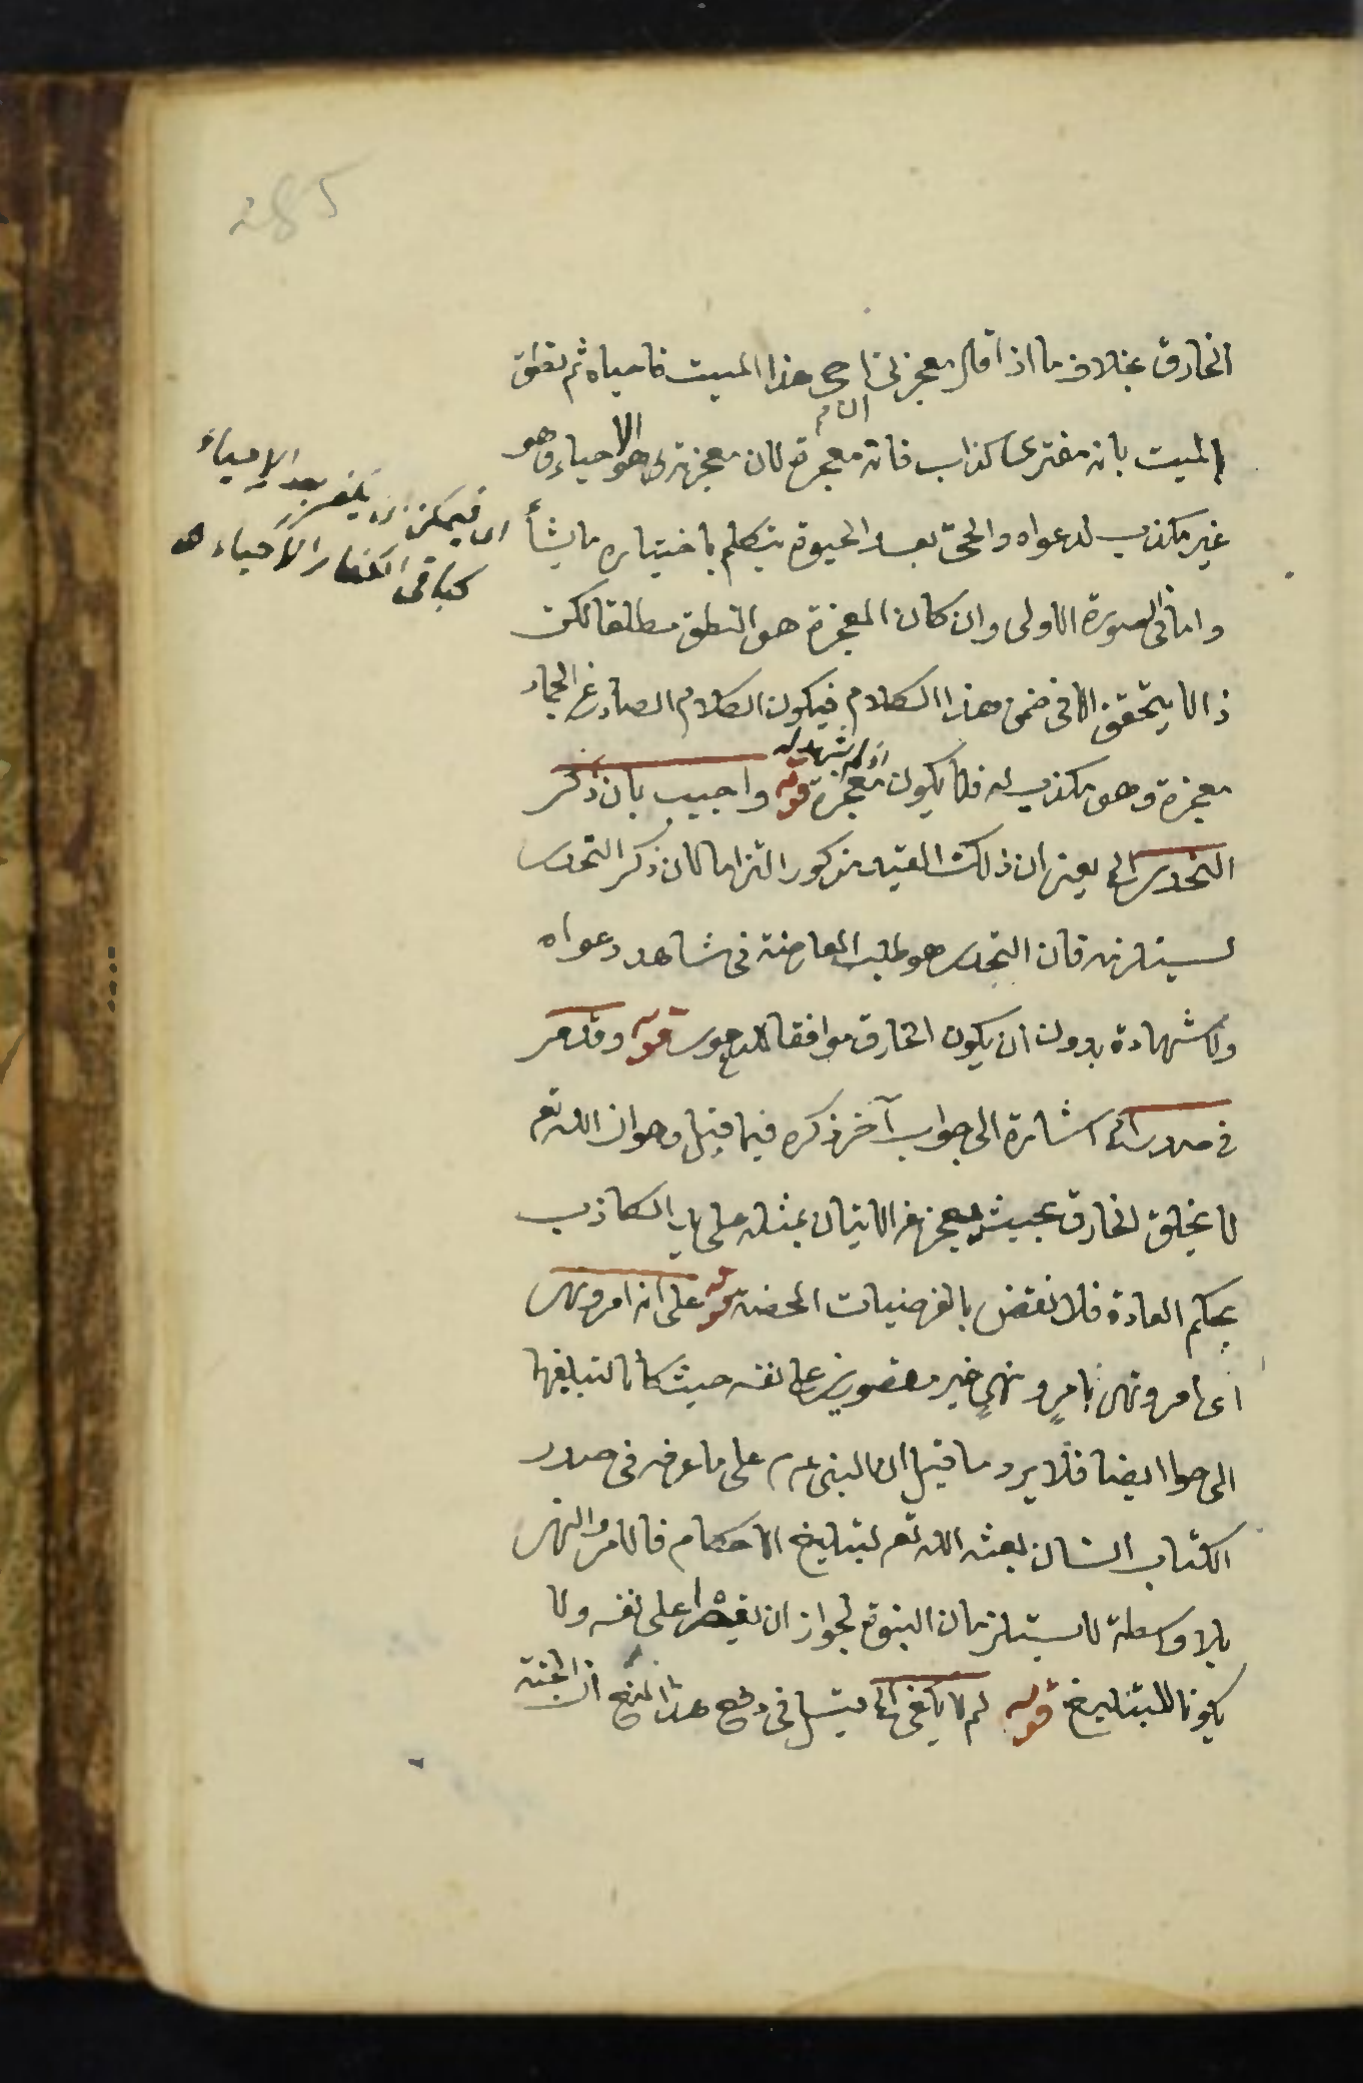 285
الخارق بخلاف ما اذا قال معجزتى احيى هذا الميت فاحياه ثم نطق
الميت بانه مفترى كذاب فانه معجزة لان معجزته هو الاحياء وهو
غير مكذب لدعواه والحى بعد الحيوة يتكلم باختياره ما يشأ
واما فى الصورة الاولى وان كان المعجزة هو النطق مطلقا لكن
ذا لا يتحقق الا فى ضمن هذا الكلام فيكون الكلام الصادر عن الجماد
معجزة وهو مكذب له فلا يكون معجزة قوله واجيب بان ذكر
اذ لم يشهد له
التحدى الخ يعنى ان ذلك القيد مذكور التزاما لان ذكر التحدى
يستلزمه فان التحدى هو طلب المعارضة فى شاهد دعواه
ولا شهادة بدون ان يكون الخارق موافقا للدعوى قوله وقد مر
فى صدر الخ اشارة الى جواب آخر ذكره فيما قبل وهو ان الله تعم
لا يخلق الخارق بحيث يعجز عن الاتيان بمثله على يد الكاذب
بحكم العادة فلا نقض بالفرضيات المحضة قوله على انه امر ونهى
اى امر ونهى بامرٍ ونهيٍ غير مقصورين على نفسه حيث كانا لتبليغهما
الى حوا ايضا فلا يرد ما قيل ان النبى عم على ما عرفه فى صدر
الكتاب انسان بعثه الله تعم لتبليغ الاحكام فالامر والنهى
بلا واسطة لا يستلزمان النبوة لجواز ان يقصرا على نفسه ولا
يكونا للتبليغ قوله لم لا يكفى الخ قيل فى دفع هذا المنع ان الجنة
اى فيمكن ان يكفر بعد الإحياء
كباقى الكفار الأحياء